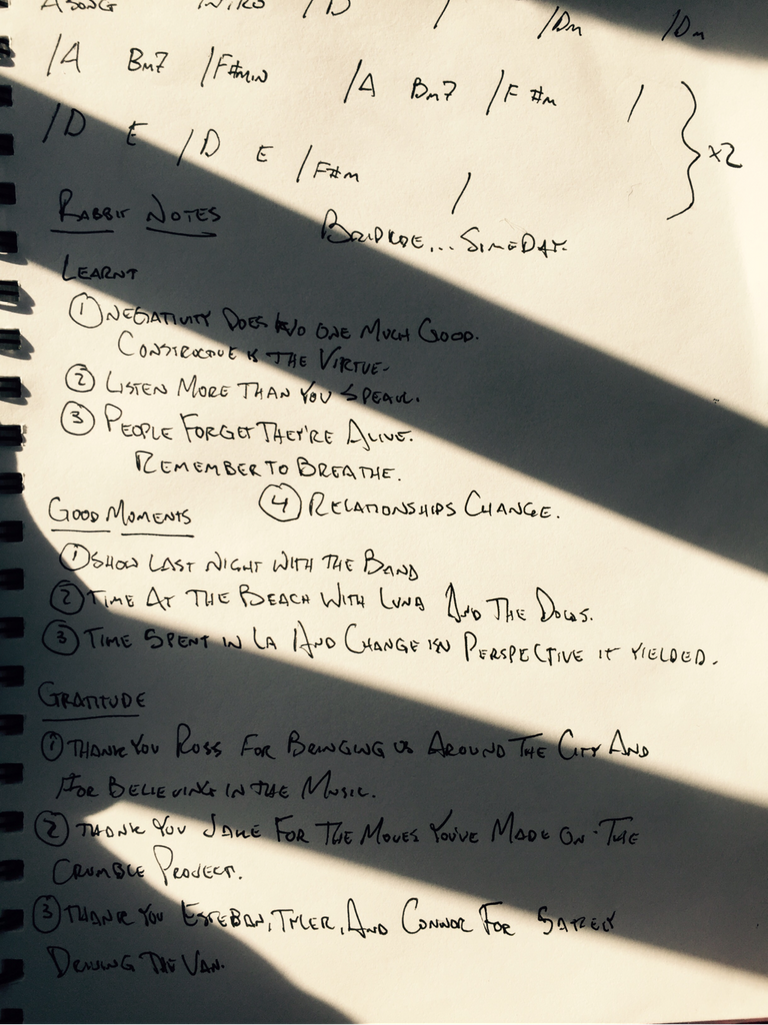 A SONG INTRO /D / /Dm /Dm
/A Bm7 /F#MIN /A Bm7 /F#m / } x2
/D E /D E /F#m /
RABBIT NOTES
BRIDGE... SOMEDAY.
LEARNT
① NEGATIVITY DOES NO ONE MUCH GOOD.
CONSTRUCTIVE IS THE VIRTUE.
② LISTEN MORE THAN YOU SPEAK.
③ PEOPLE FORGET THEY'RE ALIVE.
REMEMBER TO BREATHE.
④ RELATIONSHIPS CHANGE.
GOOD MOMENTS
① SHOW LAST NIGHT WITH THE BAND
② TIME AT THE BEACH WITH LUNA AND THE DOGS.
③ TIME SPENT IN LA AND CHANGE IN PERSPECTIVE IT YIELDED.
GRATITUDE
① THANK YOU ROSS FOR BRINGING US AROUND THE CITY AND
FOR BELIEVING IN THE MUSIC.
② THANK YOU JAKE FOR THE MOVES YOU'VE MADE ON THE
CRUMBLE PROJECT.
③ THANK YOU ESTEBAN, TYLER, AND CONNOR FOR SAFELY
DRIVING THE VAN.